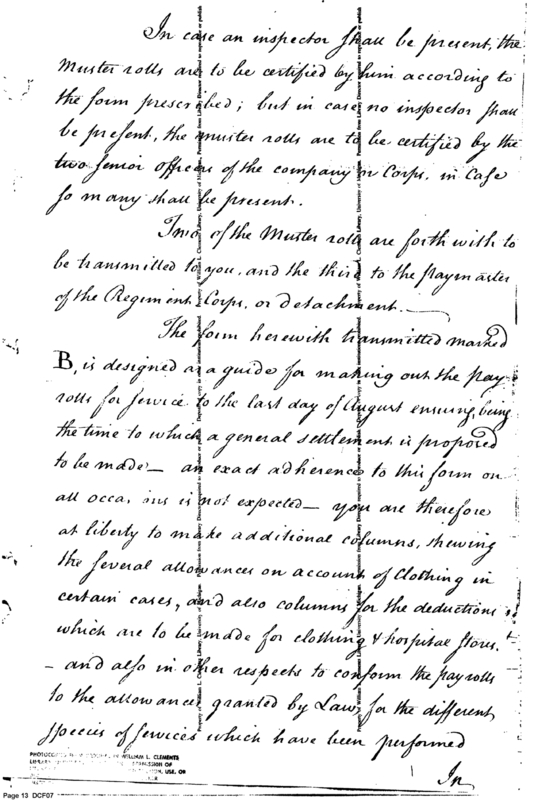 In case an inspector shall be present, the
Muster rolls are to be certified by him according to
the form prescribed; but in case no inspector shall
be present, the muster rolls are to be certified by the
two senior officers of the company or Corps, in Case
so many shall be present.
Two of the Muster rolls are forthwith to
be transmitted to you, and the third to the paymaster
of the Regiment Corps, or detachment.
The form herewith transmitted marked
B, is designed as a guide for making out the pay
rolls for service to the last day of August ensuing, being
the time to which a general settlement is proposed
to be made — an exact adherence to this form on
all occa ins is not expected — you are therefore
at liberty to make additional columns, shewing
the several allowances on account of Clothing in
certain cases, and also columns for the deductions
which are to be made for clothing & hospital stores.
- and also in other respects to conform the payrolls
to the allowances granted by Law, for the different
species of services which have been performed
In
WILLIAM L. CLEMENTS
PERMISSION OF
USE, OR
Page 13 DCF07